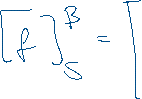 [f]_S^B = [